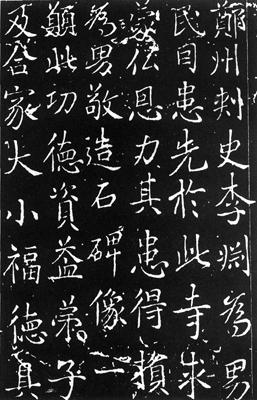 鄭州刺史李渊為男
民目患先於此寺求
蒙仏恩力其患得損
為男敬造石碑像一
願此功德資益弟子
及合家大小福德具